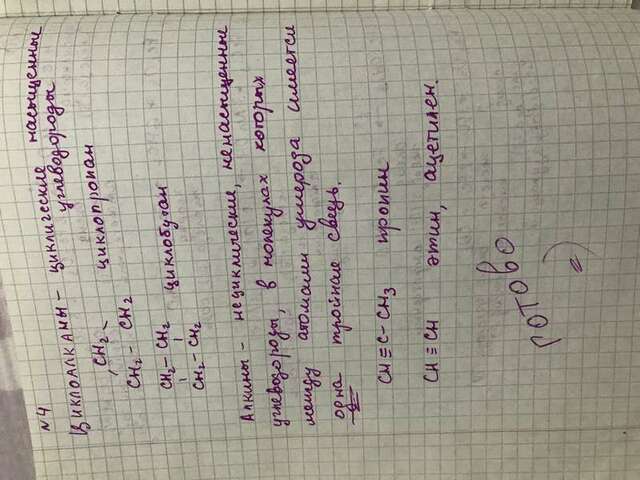 №4
Циклоалканы – циклические насыщенные
углеводороды
CH₂
CH₂ – CH₂ циклопропан
CH₂ – CH₂
CH₂ – CH₂ циклобутан
Алкины – нециклические, ненасыщенные
углеводороды, в молекулах которых
между атомами углерода имеется
одна тройная связь.
CH ≡ C – CH₃ пропин
CH ≡ CH этин, ацетилен.
готово
=)